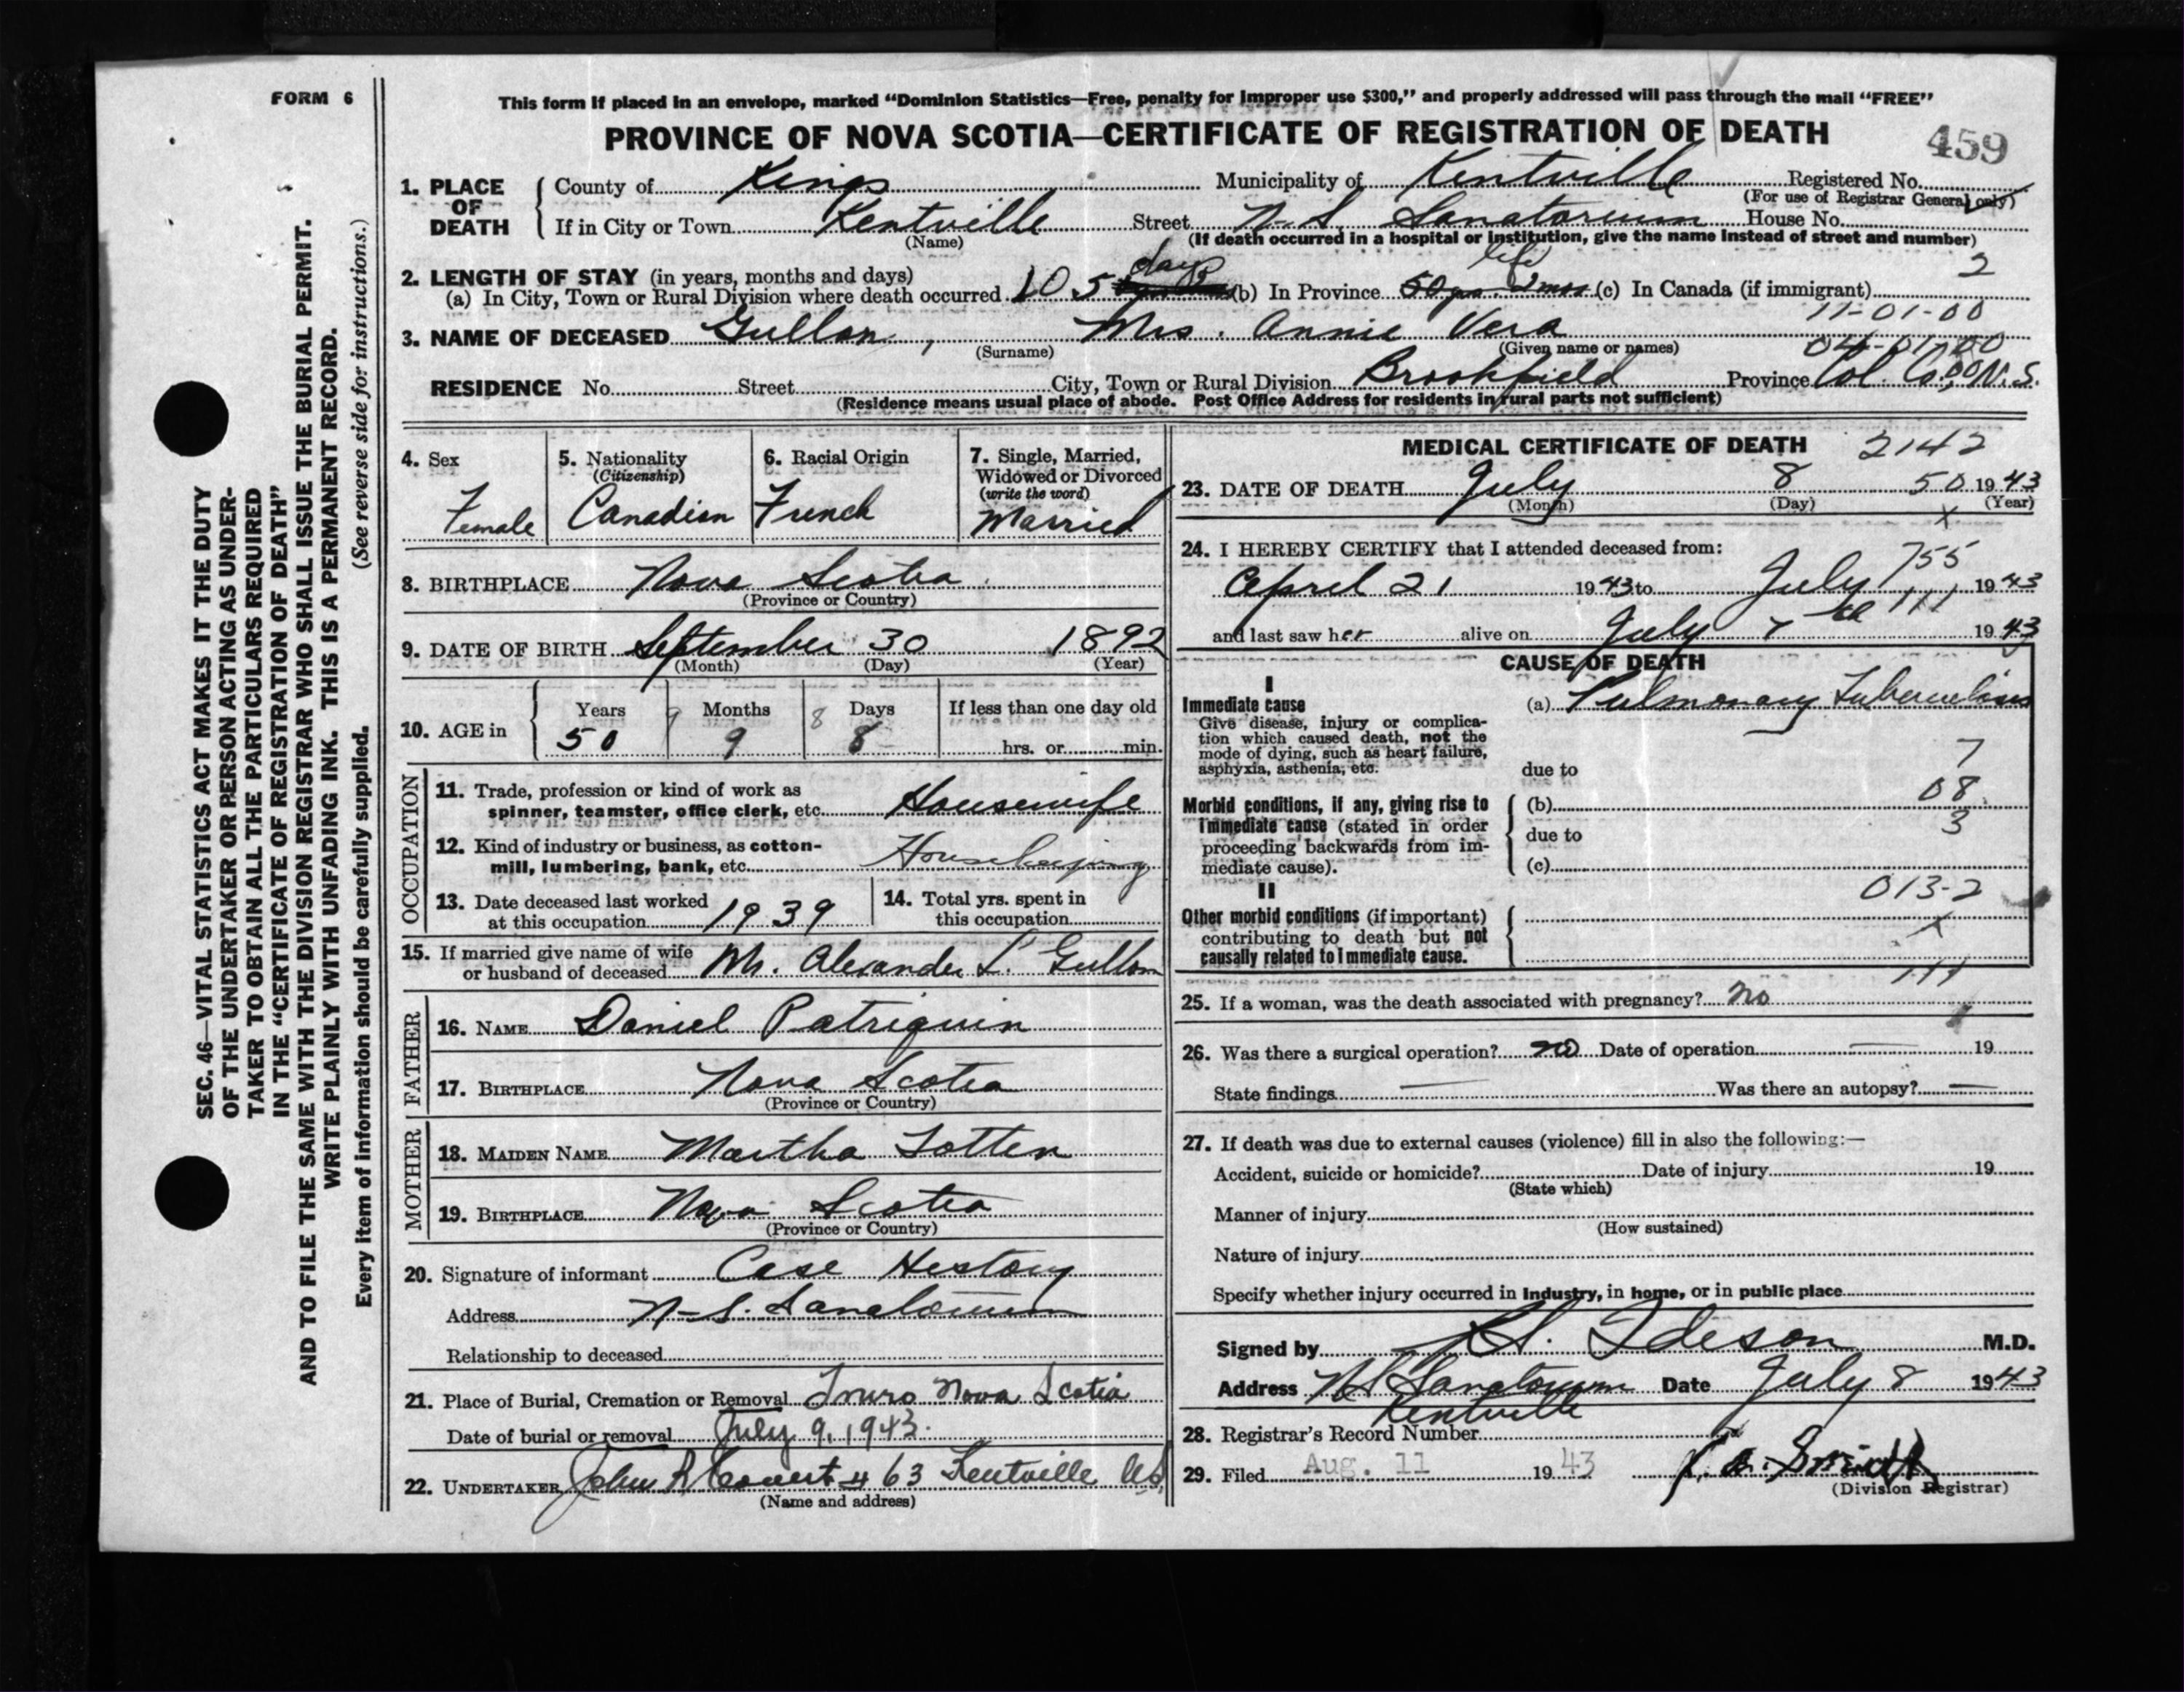 FORM 6
This form if placed in an envelope, marked “Dominion Statistics—Free, penalty for improper use $300,” and properly addressed will pass through the mail “FREE”
PROVINCE OF NOVA SCOTIA—CERTIFICATE OF REGISTRATION OF DEATH
459
1. PLACE OF DEATH County of Kings Municipality of Kentville Registered No.
(For use of Registrar General only)
If in City or Town Kentville Street N-S Sanatorium House No.
(Name) (If death occurred in a hospital or institution, give the name instead of street and number)
2. LENGTH OF STAY (in years, months and days) days life 2
(a) In City, Town or Rural Division where death occurred 105 (b) In Province 50 yrs. 2 mos (c) In Canada (if immigrant)
11-01-00
3. NAME OF DECEASED Gullon, Mrs. Annie Vera
(Surname) (Given name or names) 04-01-00
RESIDENCE No. Street City, Town or Rural Division Brookfield Province Col. Co. N.S.
(Residence means usual place of abode. Post Office Address for residents in rural parts not sufficient)
4. Sex Female
5. Nationality (Citizenship) Canadian
6. Racial Origin French
7. Single, Married, Widowed or Divorced (write the word) Married
8. BIRTHPLACE Nova Scotia
(Province or Country)
9. DATE OF BIRTH September 30 1892
(Month) (Day) (Year)
10. AGE in Years Months Days If less than one day old
9 8
50 9 8 hrs. or min.
OCCUPATION
11. Trade, profession or kind of work as
spinner, teamster, office clerk, etc. Housewife
12. Kind of industry or business, as cotton-
mill, lumbering, bank, etc. Housekeeping
13. Date deceased last worked
at this occupation 1939
14. Total yrs. spent in
this occupation
15. If married give name of wife
or husband of deceased Mr. Alexander L. Gullon
FATHER
16. NAME Daniel Patriquin
17. BIRTHPLACE Nova Scotia
(Province or Country)
MOTHER
18. MAIDEN NAME Martha Totten
19. BIRTHPLACE Nova Scotia
(Province or Country)
20. Signature of informant Case History
Address N-S. Sanatorium
Relationship to deceased
21. Place of Burial, Cremation or Removal Truro Nova Scotia
Date of burial or removal July 9, 1943.
22. UNDERTAKER John R 63 Kentville NS
(Name and address)
MEDICAL CERTIFICATE OF DEATH 2142
23. DATE OF DEATH July 8 50 1943
(Month) (Day) (Year)
X
24. I HEREBY CERTIFY that I attended deceased from:
755
April 21 1943 to July 1943
111
and last saw her alive on July 7th 1943
CAUSE OF DEATH
I
Immediate cause (a) Pulmonary Tuberculosis
Give disease, injury or complica-
tion which caused death, not the
mode of dying, such as heart failure,
asphyxia, asthenia, etc. due to 7
08
Morbid conditions, if any, giving rise to (b)
immediate cause (stated in order due to 3
proceeding backwards from im-
mediate cause). (c)
II 013-2
Other morbid conditions (if important)
contributing to death but not X
causally related to immediate cause.
111
25. If a woman, was the death associated with pregnancy? No
26. Was there a surgical operation? no Date of operation — 19
State findings — Was there an autopsy? —
27. If death was due to external causes (violence) fill in also the following:—
Accident, suicide or homicide? Date of injury 19
(State which)
Manner of injury
(How sustained)
Nature of injury
Specify whether injury occurred in industry, in home, or in public place
Signed by Ideson M.D.
Address NS Sanatorium Date July 8 1943
Kentville
28. Registrar's Record Number
29. Filed Aug. 11 1943
(Division Registrar)
SEC. 46—VITAL STATISTICS ACT MAKES IT THE DUTY
OF THE UNDERTAKER OR PERSON ACTING AS UNDER-
TAKER TO OBTAIN ALL THE PARTICULARS REQUIRED
IN THE “CERTIFICATE OF REGISTRATION OF DEATH”
AND TO FILE THE SAME WITH THE DIVISION REGISTRAR WHO SHALL ISSUE THE BURIAL PERMIT.
WRITE PLAINLY WITH UNFADING INK. THIS IS A PERMANENT RECORD.
Every item of information should be carefully supplied. (See reverse side for instructions.)